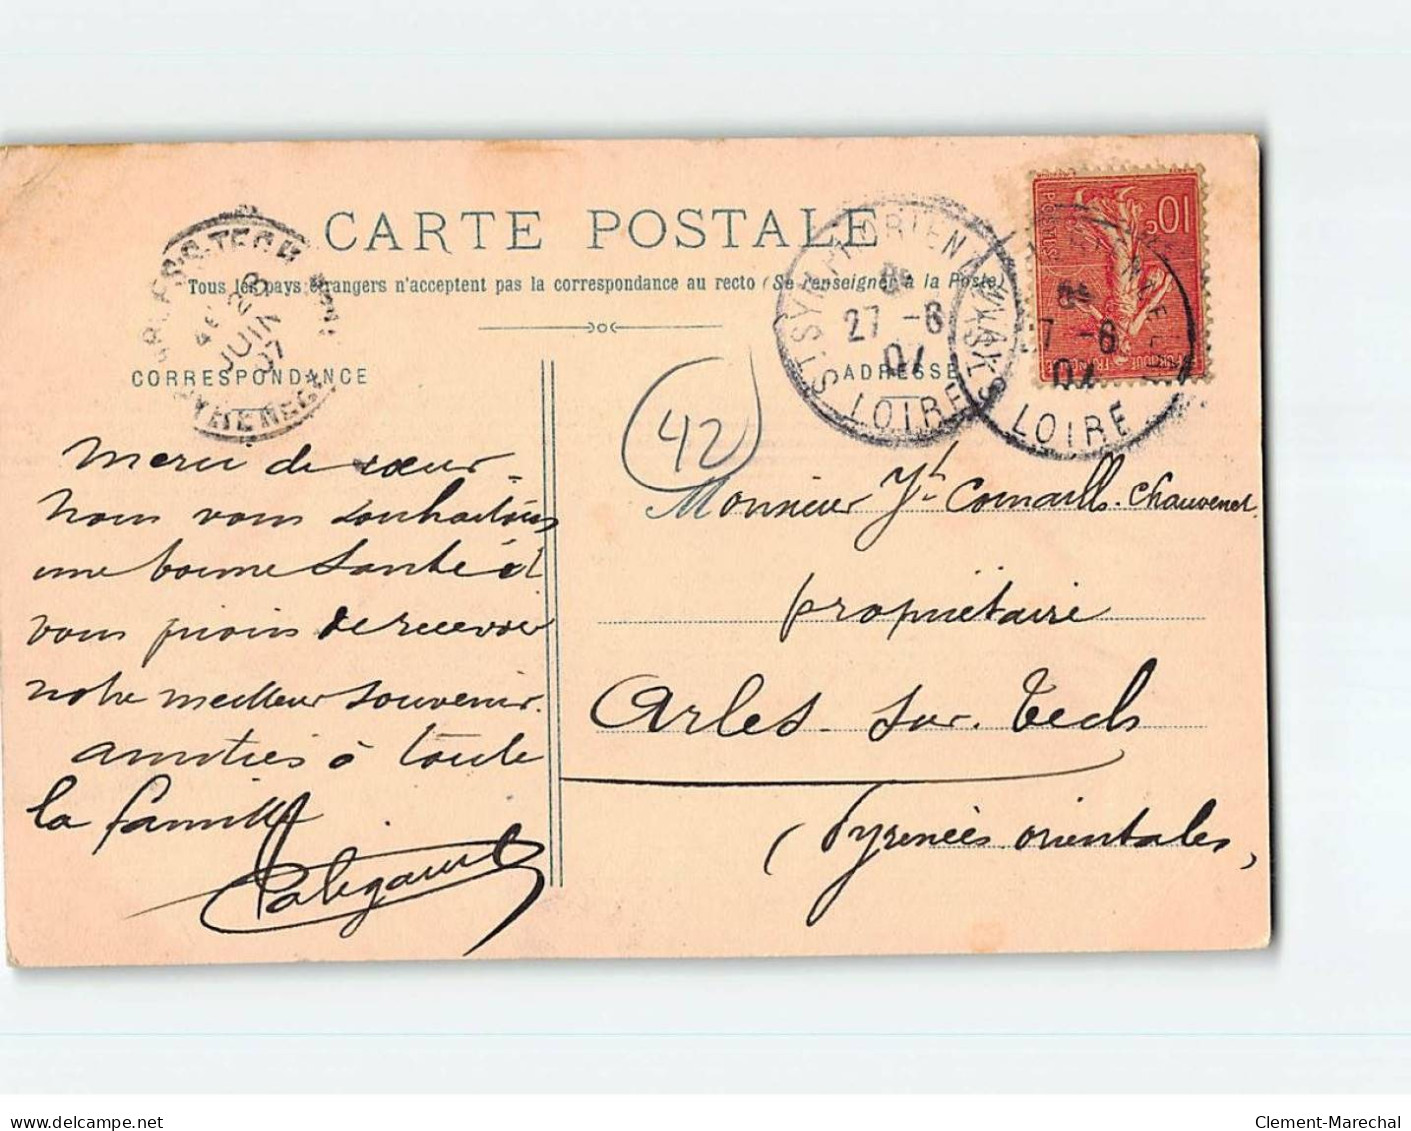 CARTE POSTALE
Tous les pays étrangers n'acceptent pas la correspondance au recto (Se renseigner à la Poste)
CORRESPONDANCE
ADRESSE
ARLES-S-TECH
28
JUIN
07
ST SYMPHORIEN
27 -6
07
LOIRE
27 -6
07
LOIRE
10c
POSTES
42
Merci de cœur.
Nous vous souhaitons
une bonne santé et
vous prions de recevoir
notre meilleur souvenir.
amitiés à toute
la famille
Monsieur Jh Chauvenet
propriétaire
Arles sur Tech
(Pyrénées orientales,
www.delcampe.net
Clement-Marechal